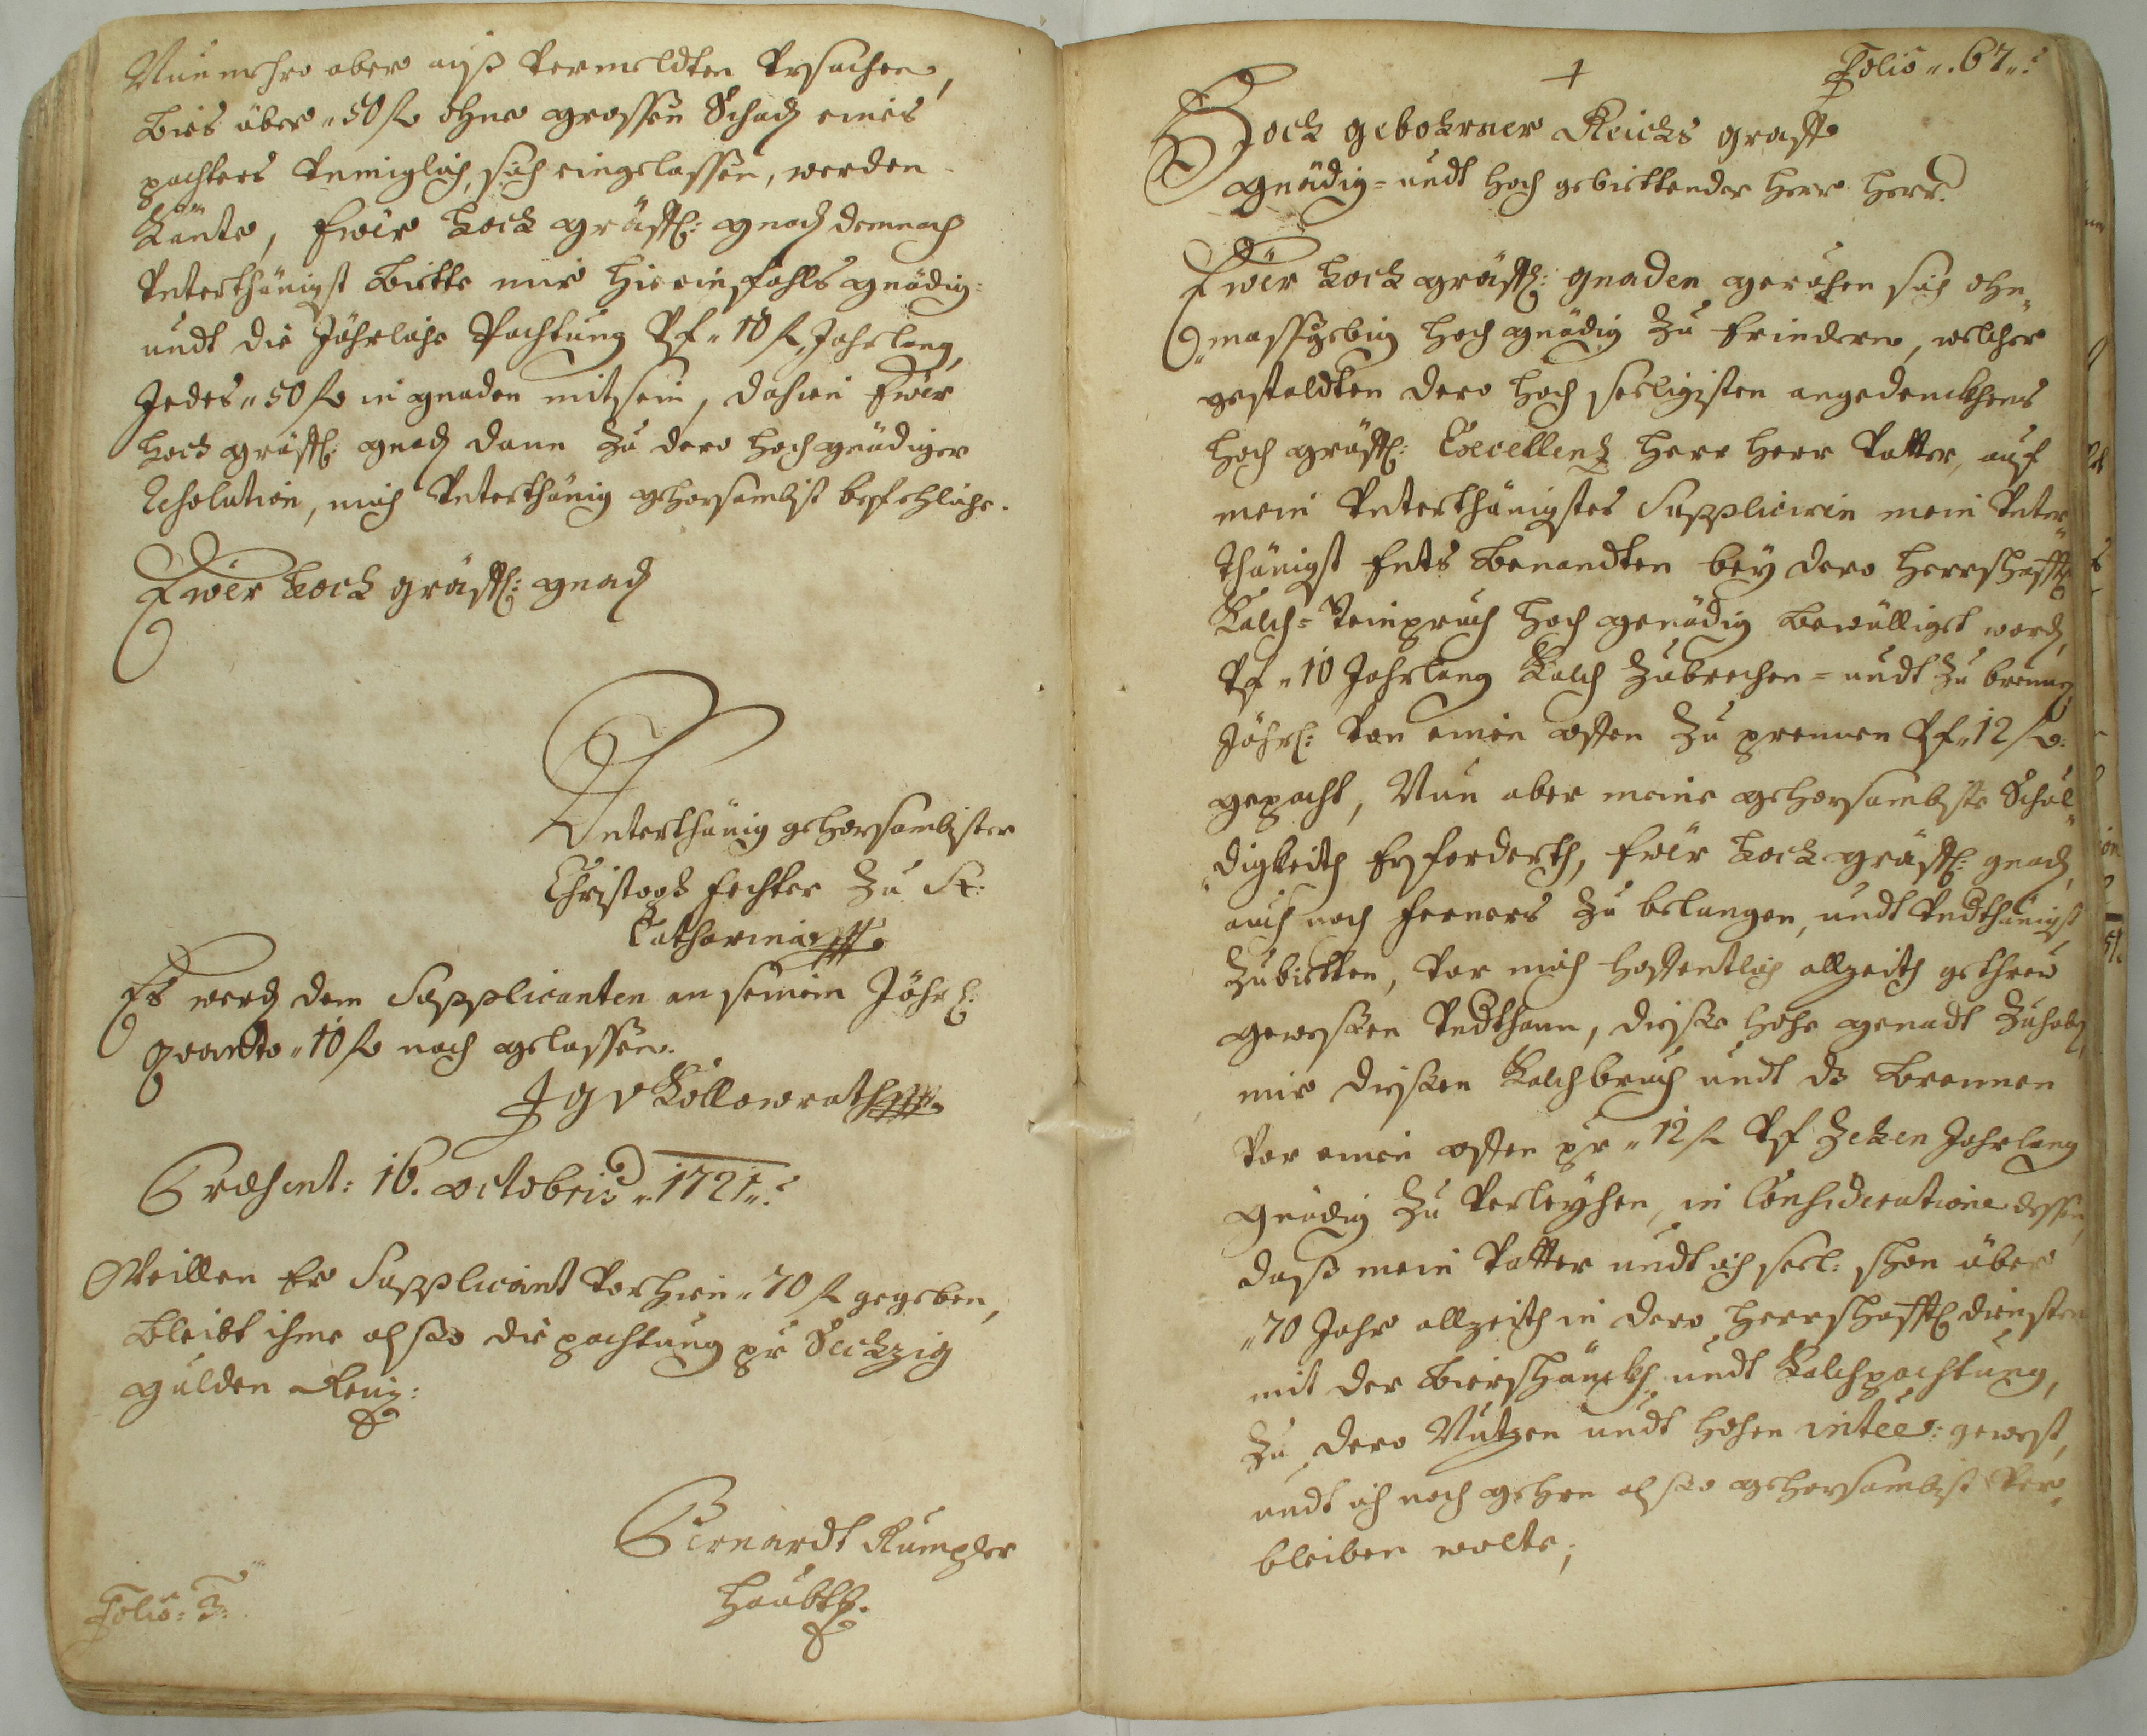 Nunmehro aber auß Vermeldten Vrsachen,
Bies über „50 fl ohne grossen Schad eines
pachters Vnmiglich, sich eingelassen, werden
Känte, Ewer Hoch gräffl: gnad demnach
Vnterthänigst Bitte mir hierinfahls gnädig=
undt die Jährliche Pachtung Vf „10 fl, Jahrlang,
Jedes „50 fl in gnaden mitsein, dahien Ewer
Hoch gräffl: gnad dann zu dero hochgnädiger
Resolution, mich Vnterthänig gehorsambst befehliche.
Ewer Hoch gräffl: gnad
Vnterthänig gehorsambster
Christoph fechter zu St:
Catharina
Es werd dem Supplicanten an seinem Jährl:
quanto „10 fl nach gelassen.
J G v Kollowrath
Præsent: 16. octobris „1721„
Weillen Er Supplicant Vorhien „70 fl gegeben,
Bleibt ihme also die pachtung pr Sechzig
gulden Reng:
Bernardt Rumpler
Haubtb.
Folio: 3:
Folio „.67„
+
Hoch gebohrner Reichs graff
gnädig= undt Hoch gebiettender Herr Herr.
Ewer Hoch gräffl: gnaden geruhen sich ohn„
„massgebig hoch gnädig zu Erinderen, welcher
gestaldten dero hoch seeligisten angedenckhens
hoch gräffl: Excellenz Herr Herr Vatter, auf
mein Vnterthänigstes Suppliciren mein Vnter„
thänigst Ents Benandten bey dero Herrschafftl
Kalch= Steinpruch hoch genädig bewülliget word,
Vf „10 Jahrlang Kalch zubrechen= undt zu brennen,
Jährl: Von einen offen zu prennen Vf „12 fl:
gepacht, Nun aber meine gehorsambste Schul„
„digkeith Erforderth, Ewer Hoch gräffl: gnad,
auch noch ferners zu belangen, undt Vndthänigst
zubitten, Vor mich hoffentlich allzeith getheu
gewesten Vndthann, dieße hohe genadt zuhaben,
mir dießen Kalchbruch undt dz Brennen
Vor einen offen pr „12 fl Vf zehen Jahrlang
gnädig zu Verleyhen, in Consideratione dessen,
daß mein Vatter undt ich seel: schon über
„70 Jahr allzeith in dero Herrschafftl diensten
mit der Bierschänckh undt Kalchpachtung,
zu dero Nutzen undt hohen inter: gewest,
undt ich noch gehrn also gehorsambst Ver„
bleiben wolte;